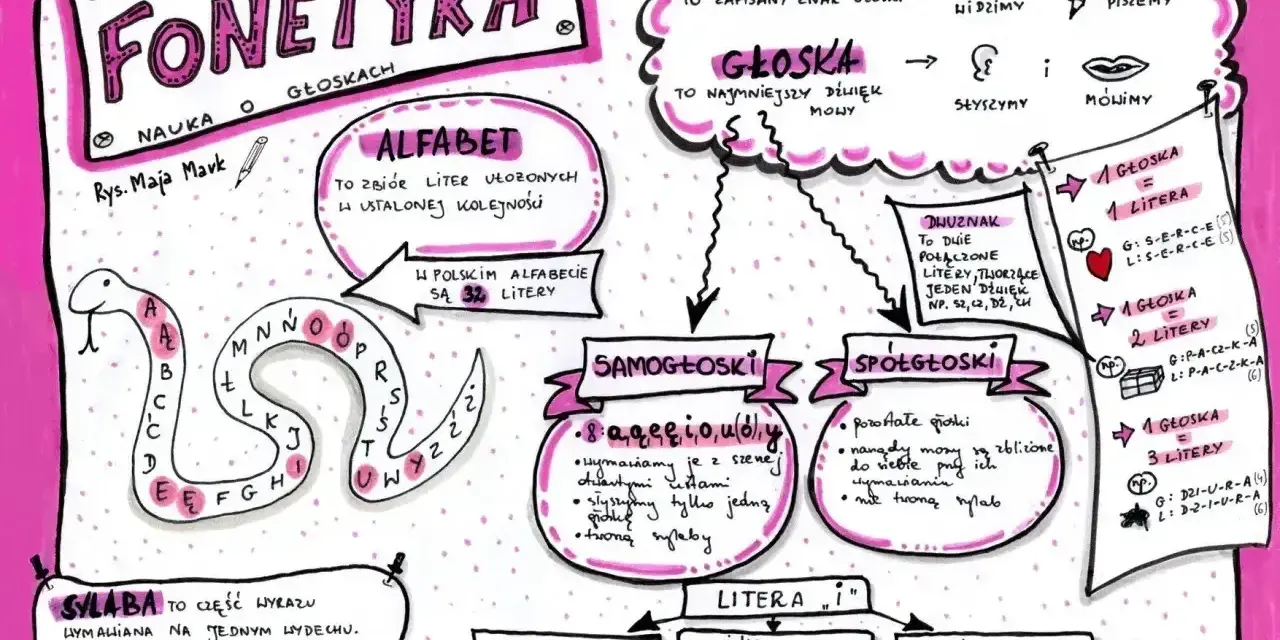 FONETYKA
NAUKA O GŁOSKACH
Rys. Maja Mavk
TO ZAPISANY ZNAK GŁOSKI
WIDZIMY
PISZEMY
GŁOSKA → i
TO NAJMNIEJSZY DŹWIĘK
MOWY
SŁYSZYMY
MÓWIMY
ALFABET
TO ZBIÓR LITER UŁOŻONYCH
W USTALONEJ KOLEJNOŚCI
W POLSKIM ALFABECIE
SĄ 32 LITERY
A Ą B C Ć D E Ę F G H I J K L Ł M N Ń O Ó P R S Ś T U W Y Z Ź Ż
DWUZNAK
TO DWIE
POŁĄCZONE
LITERY, TWORZĄCE
JEDEN DŹWIĘK
NP. SZ, CZ, DŻ, CH
1 GŁOSKA
=
1 LITERA
np.
G: S-E-R-C-E (5)
L: S-E-R-C-E (5)
1 GŁOSKA
=
2 LITERY
np.
G: P-A-CZ-K-A (5)
L: P-A-C-Z-K-A (6)
1 GŁOSKA
=
3 LITERY
np.
G: DZI-U-R-A (4)
L: D-Z-I-U-R-A (6)
SAMOGŁOSKI
• 8: a, ą, e, ę, i, o, u(ó), y
• wymawiamy je z szeroko
otwartymi ustami
• słyszymy tylko jedną
głoskę
• tworzą sylaby
SPÓŁGŁOSKI
• pozostałe głoski
• narządy mowy są zbliżone
do siebie przy ich
wymawianiu
• nie tworzą sylab
SYLABA TO CZĘŚĆ WYRAZU
WYMAWIANA NA JEDNYM WYDECHU.
LITERA „i"